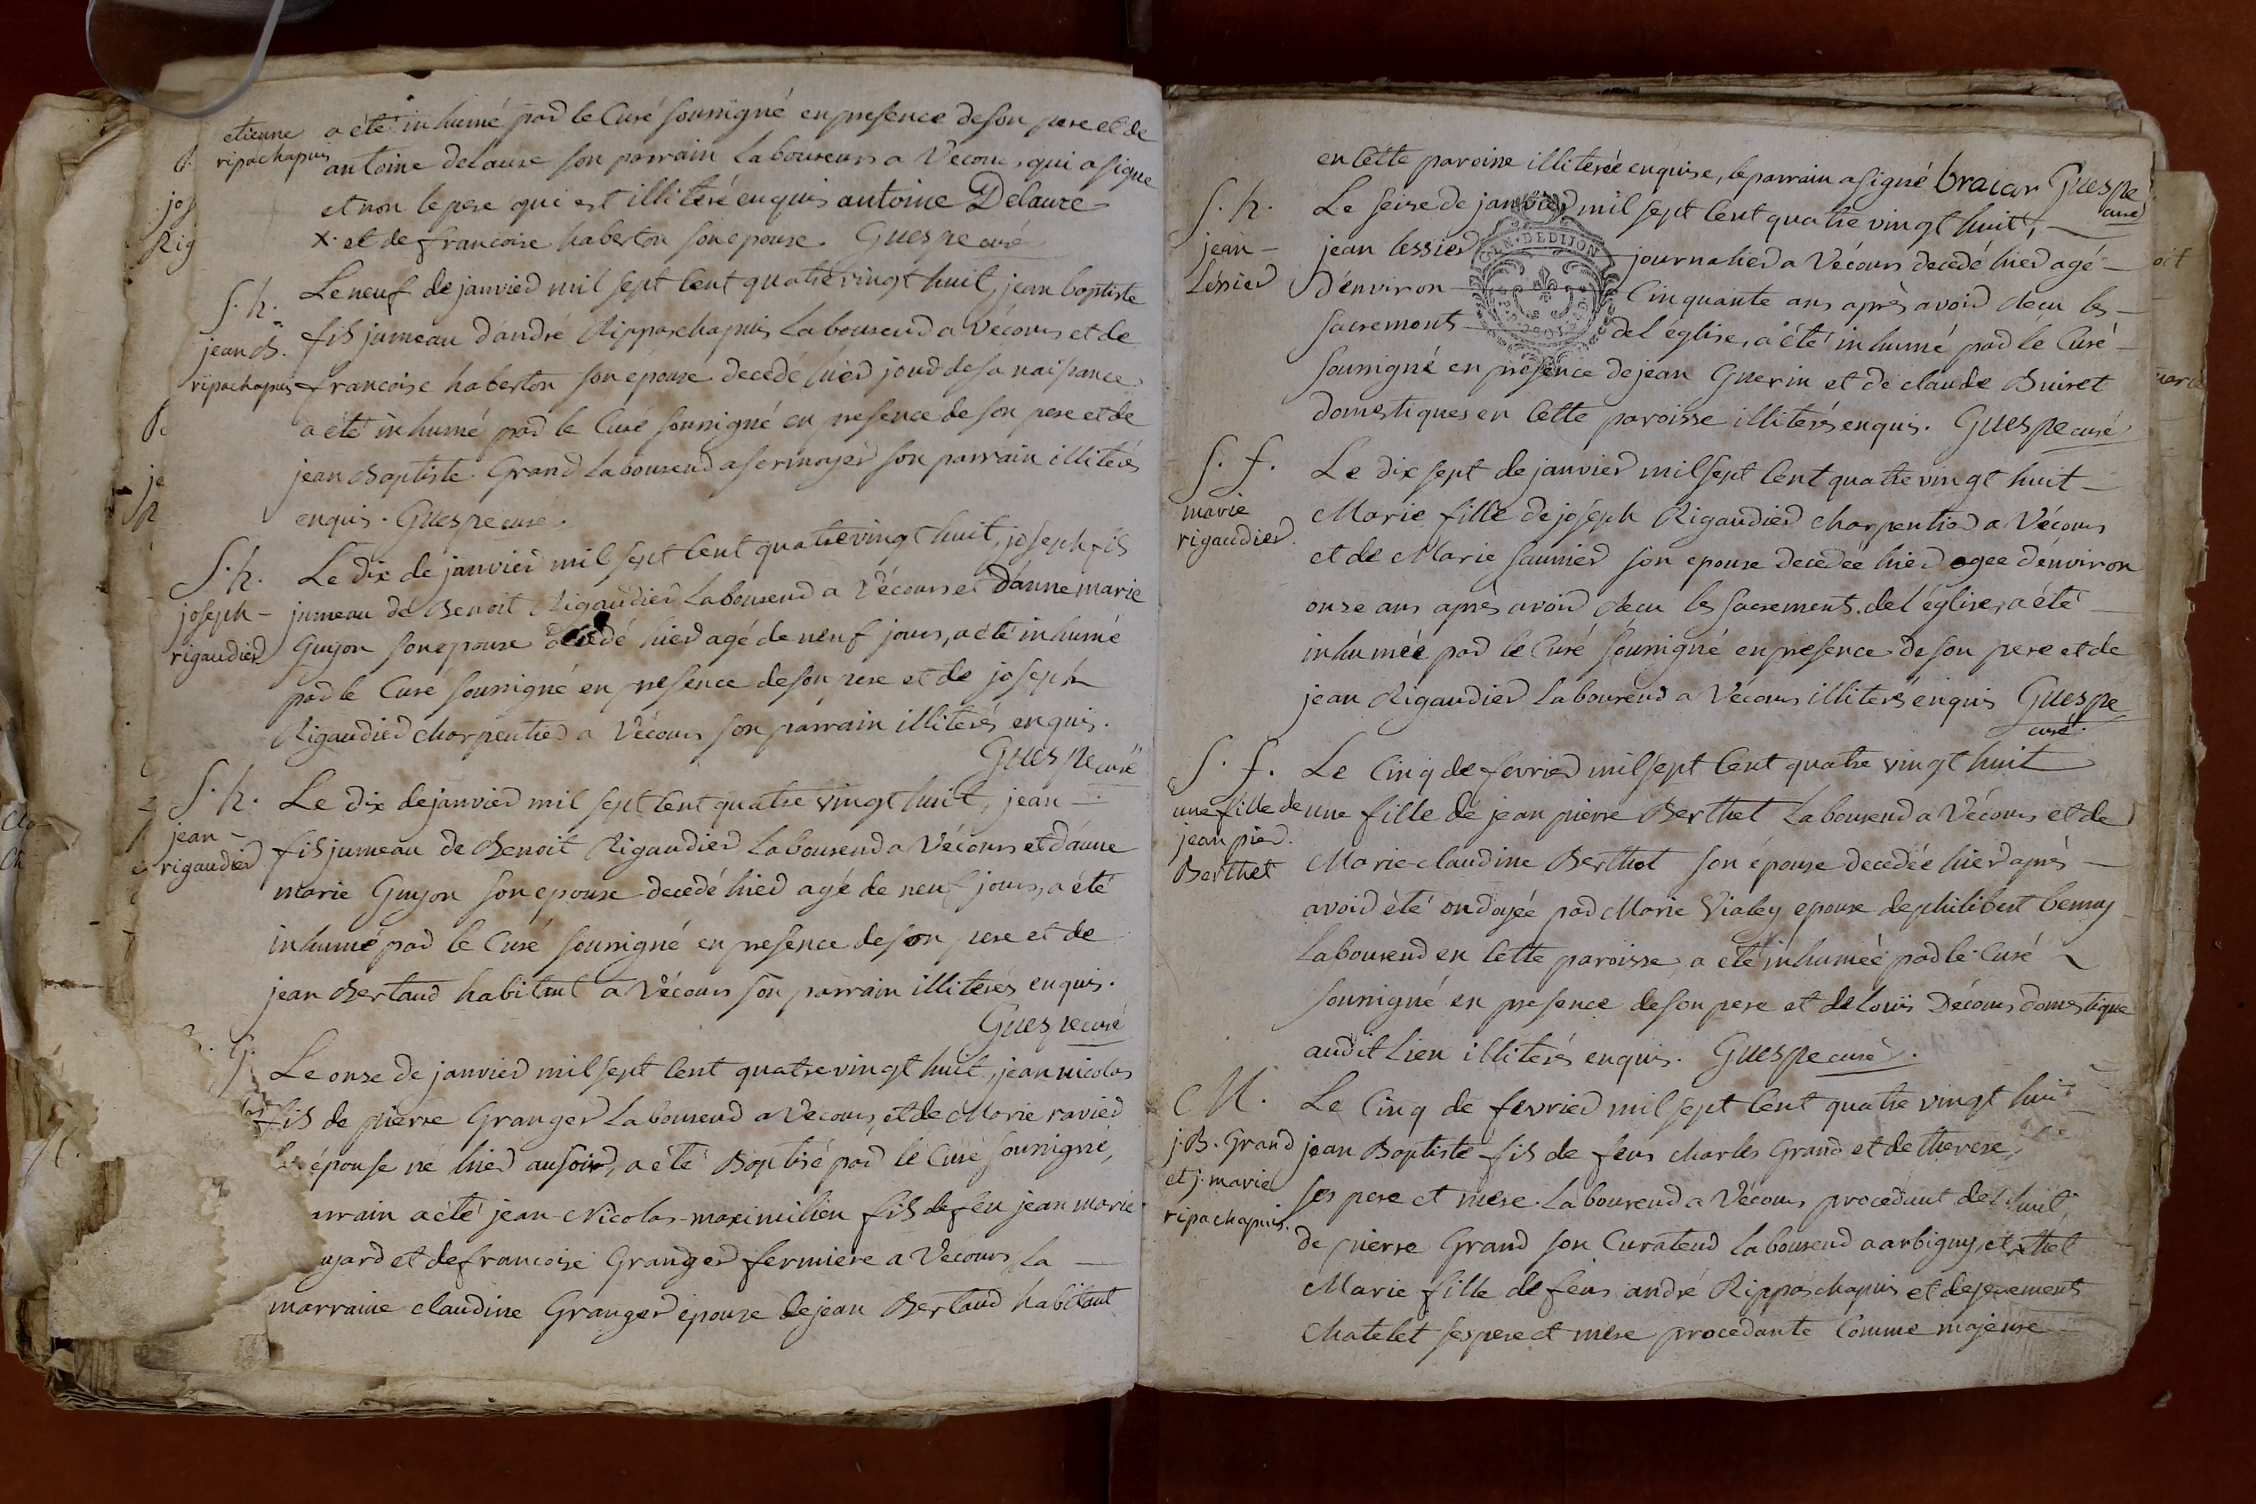 etienne
ripachapuis
a été inhumé par le Curé soussigné en presence de son pere et de
antoine delaure son parrain laboureurs a Vecours, qui a signe
et non le pere qui est illiteré enquis antoine Delaure
x. et de francoise haberton son epouse. Guespe curé
S. h.
jean B.
ripachapuis
Le neuf de janvier mil sept cent quatre vingt huit, jean baptiste
fils jumeau d'andré Rippaschapuis laboureur a Vécours et de
francoise haberton son épouse decedé hier jour de sa naissance
a été inhumé par le Curé soussigné en presence de son pere et de
jean Baptiste Grand laboureur a sermoyer son parrain illiterés
enquis. Guespe curé.
S. h.
joseph
rigaudier
Le dix de janvier mil sept cent quatre vingt huit, joseph fils
jumeau de Benoit Rigaudier laboureur a Vécours et d'anne marie
Guyon son epouse decedé hier agé de neuf jours, a été inhumé
par le Curé soussigné en presence de son pere et de joseph
Rigaudier charpentier a Vécours son parrain illiterés enquis.
Guespe curé
S. h.
jean
rigaudier
Le dix de janvier mil sept cent quatre vingt huit, jean
fils jumeau de Benoit Rigaudier laboureur a Vécours et d'anne
marie Guyon son epouse decedé hier agé de neuf jours, a été
inhumé par le Curé soussigné en presence de son pere et de
jean Bertaud habitant a Vécours son parrain illiterés enquis.
Guespe curé
Le onse de janvier mil sept cent quatre vingt huit, jean nicolas
fils de pierre Granger laboureur a Vecours, et de Marie ravier
épouse né hier au soir, a été Baptisé par le Curé soussigné,
arrain a été jean-Nicolas-maximilien fils de feu jean marie
ujard et de francoise Granger fermiere a Vécours, la
marraine claudine Granger épouse de jean Bertaud habitant
en cette paroisse illiterée enquise, le parrain a signé braiar Guespe
curé
S. h.
jean
léssier
Le seise de janvier mil sept cent quatre vingt huit,
jean lessier journalier a Vécours decedé hier agé
d'environ Cinquante ans après avoir reçu les
sacrements de l'eglise, a été inhumé par le Curé
GEN. DE DIJON
soussigné en présence de jean Guerin et de claude Buiret
domestiques en cette paroisse illiterés enquis. Guespe curé
S. f.
marie
rigaudier
Le dix sept de janvier mil sept cent quatre vingt huit
Marie fille de joséph Rigaudier charpentier a Vécours
et de Marie saunier son epouse decedée hier agee d'environ
onze ans après avoir reçu les sacrements de l'église, a été
inhumée par le Curé soussigné en presence de son pere et de
jean Rigaudier laboureur a Vecours illiterés enquis Guespe
curé.
S. f.
une fille de
jean pier.
Berthet
Le Cinq de fevrier mil sept cent quatre vingt huit
une fille de jean pierre Berthet laboureur a Vécours et de
Marie-claudine Berthot son épouse decedée hier après
avoir été ondoyée par Marie Vialey epouse de philibert
laboureur en cette paroisse, a été inhumée par le Curé
soussigné en presence de son pere et de louis Décours domestique
audit lieu illiterés enquis. Guespe curé.
M.
j. B. Grand
et j. marie
ripachapuis.
Le Cinq de fevrier mil sept cent quatre vingt huit
jean Baptiste fils de feus charles Grand et de therese
ses pere et mere laboureur a Vécours procedant de l'
de pierre Grand son Curateur laboureur a arbigny, et
Marie fille de feus andré Rippaschapuis et de
Chatelet ses pere et mere procedante Comme majeure